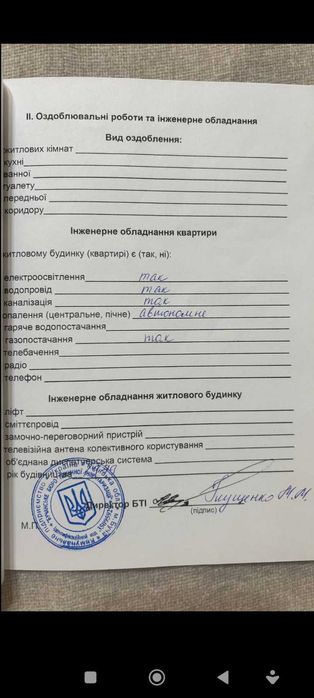 II. Оздоблювальні роботи та інженерне обладнання
Вид оздоблення:
житлових кімнат
кухні
ванної
туалету
передньої
коридору
Інженерне обладнання квартири
житловому будинку (квартирі) є (так, ні):
електроосвітлення так
водопровід так
каналізація так
опалення (центральне, пічне) автономне
гаряче водопостачання
газопостачання так
телебачення
радіо
телефон
Інженерне обладнання житлового будинку
ліфт
сміттєпровід
замочно-переговорний пристрій
телевізійна антена колективного користування
об'єднана диспетчерська система
рік будівництва
Директор БТІ Глущенко М.М.
(підпис)
М.П.